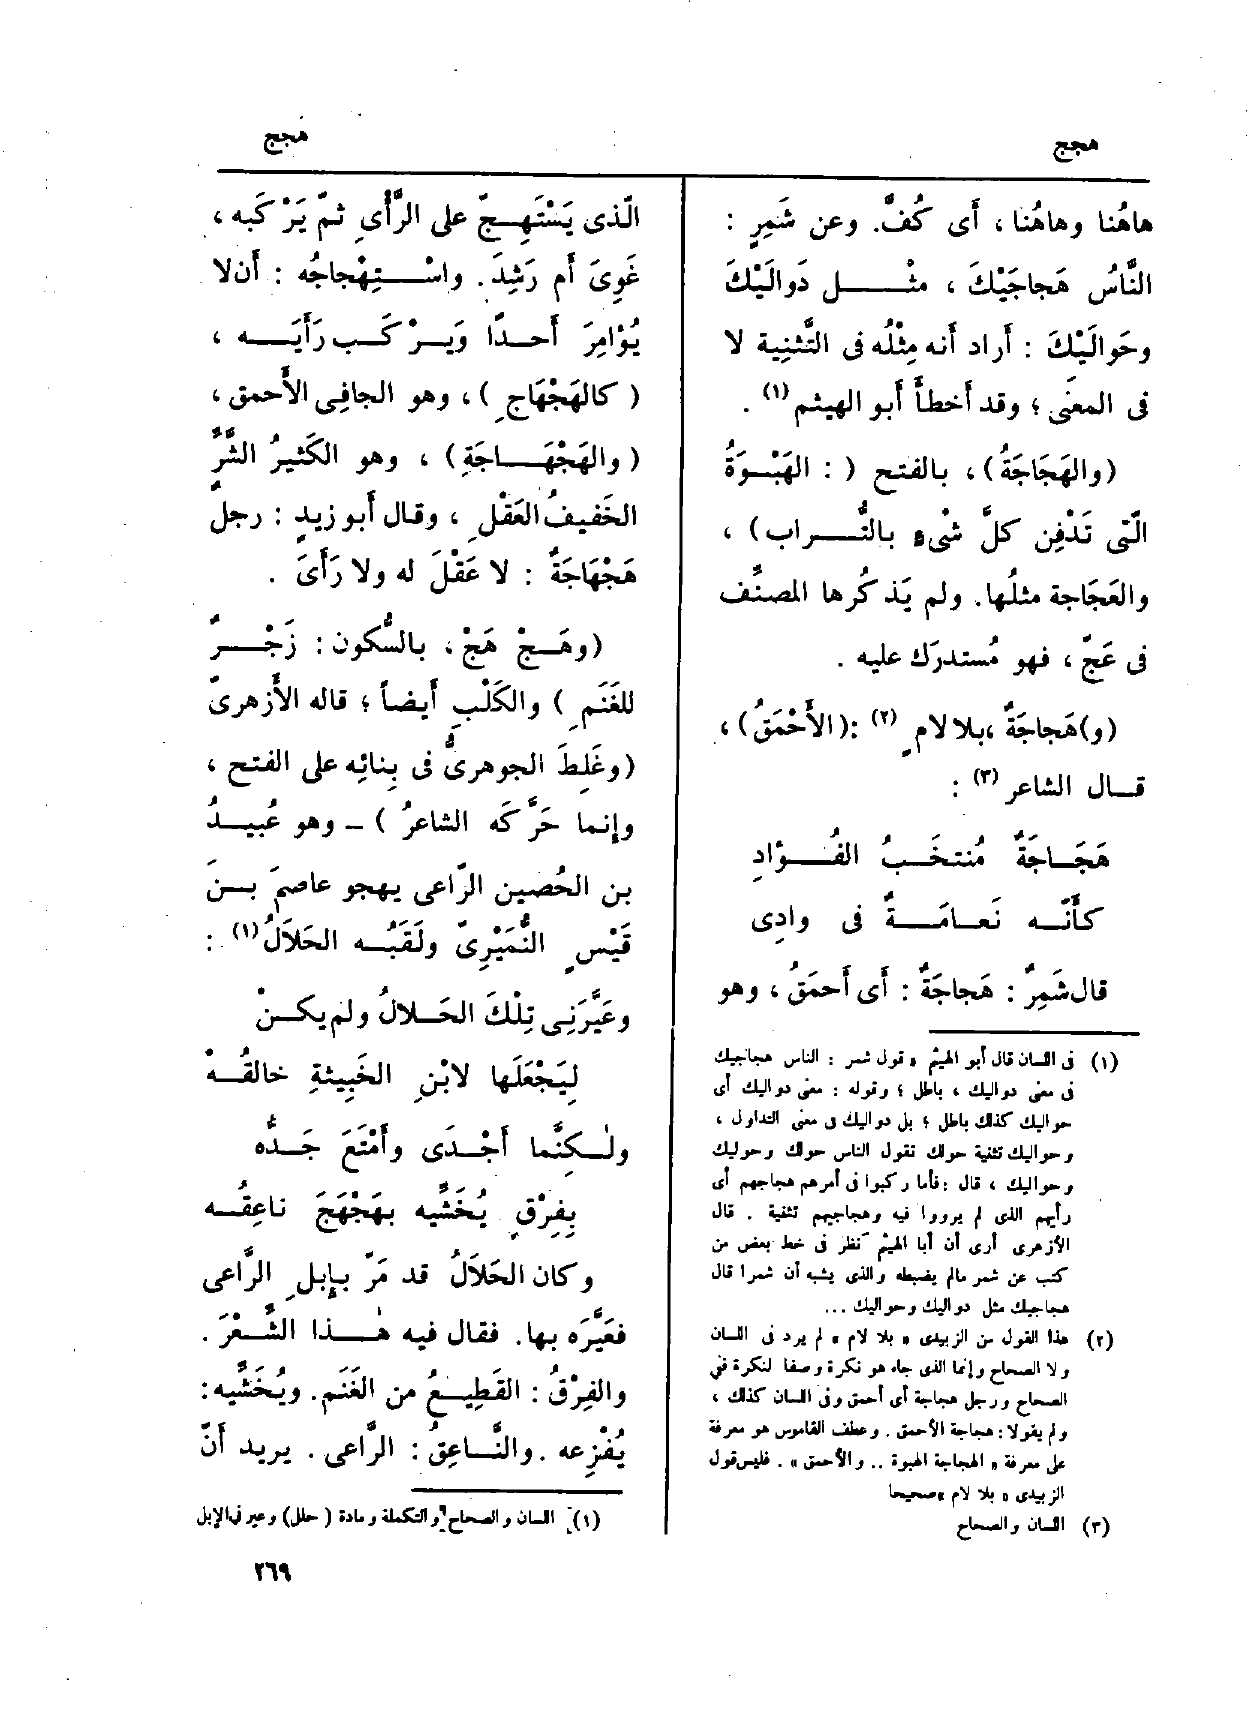 هجج
هجج
هاهُنا وهاهُنا ، أَى كُفَّ. وعن شَمِرٍ :
النَّاسُ هَجاجَيْكَ ، مثْــل دَوالَيْكَ
وحَوالَيْكَ : أَراد أَنه مِثْلُه فى التَّثنِية لا
فى المعنَى ؛ وقد أَخطأَ أَبو الهيثم (١) .
(والهَجَاجَةُ) ، بالفتح ( : الهَبْوَةُ
الَّتى تَدْفِن كلَّ شىْءٍ بالتُّــراب) ،
والعَجَاجة مثلُها. ولم يَذكُرها المصنِّف
فى عَجّ ، فهو مُستدرَك عليه .
(و)هَجاجَةُ ،بلا لامٍ (٢) :(الأَحْمَقُ) ،
قــال الشاعر (٣) :
هَجَــاجَةٌ مُنتخَبُ الفُــؤادِ
كأَنَّــه نَعــامَــةٌ فى وادِى
قال شَمِرٌ : هَجاجَةٌ : أَى أَحمَقُ ، وهو
(١) فى اللسان قال أبو الهيثم « قول شمر : الناس هجاجيك
فى معنى دواليك ، باطل ؛ وقوله : معنى دواليك أى
حواليك كذلك باطل ؛ بل دواليك فى معنى التداول ،
وحواليك تثنية حوالك تقول الناس حولك وحوليك
وحواليك ، قال :فأما ركبوا فى أمرهم هجاجهم أى
رأيهم الذى لم يرووا فيه وهجاجيهم تثنية . قال
الأزهرى أرى أن أبا الهيثم نظر فى خط بعض من
كتب عن شمر مالم يضبطه والذى يشبه أن شمرا قال
هجاجيك مثل دواليك وحواليك ...
(٢) هذا القول من الزبيدى « بلا لام » لم يرد فى اللسان
ولا الصحاح وإنما الذى جاء هو نكرة وصفا لنكرة فى
الصحاح ورجل هجاجة أى أحمق وفى اللسان كذلك ،
ولم يقولا : هجاجة الأحمق . وعطف القاموس هو معرفة
على معرفة « الهجاجة الهبوة .. والأحمق » . فليس قول
الزبيدى « بلا لام »صحيحا
(٣) اللسان والصحاح
الَّذى يَسْتَهِــجّ على الرَّأْىِ ثمّ يَرْكَبه ،
غَوِىَ أَم رَشِدَ. واسْــتِهْجاجُه : أَن لا
يُؤامِرَ أَحــدًا ويَــرْكَــب رَأْيَــه ،
( كالهَجْهَاجِ )، وهو الجافِى الأَحمق،
( والهَجْهَــاجَةِ) ، وهو الكَثيرُ الشَّرِّ
الخَفيفُ العَقْلِ ، وقال أَبو زيدٍ : رجل
هَجْهَاجَةٌ : لا عَقْلَ له ولا رَأْىَ .
(وهَــجْ هَجْ ، بالسُّكون : زَجْــرٌ
للغَنَمِ ) والكَلْبِ أَيضاً ؛ قاله الأَزهرىّ
(وغَلِطَ الجوهرىُّ فى بِنائه على الفتح ،
وإنما حَرَّكَه الشاعرُ ) – وهو عُبيــدُ
بن الحُصين الرّاعى يهجو عاصمَ بــنَ
قَيْسٍ النُّمَيْرِىّ ولَقَبُــه الحَلاَلُ (١) :
وعَيَّرَنِى تِلْكَ الحَــلالُ ولم يكــنْ
لِيَجْعَلَها لابْنِ الخَبِيثةِ خالقُــهْ
ولٰــكِنَّما أَجْــدَى وأَمْتَعَ جَــدُّه
بِفِرْقٍ يُخَشِّيه بهَجْهَجَ ناعِقُــه
وكان الحَلاَلُ قد مَرّ بإِبلِ الرَّاعى
فعَيَّره بها. فقال فيه هٰــذا الشِّــعْرَ .
والفِرْقُ : القَطِيــعُ من الغَنَم . ويُخَشِّيه :
يُفْزِعه . والنَّــاعِقُ : الرَّاعى . يريد أَنّ
(١) اللسان والصحاح والتكملة ومادة ( حلل) وعير فى الإبل
٢٦٩